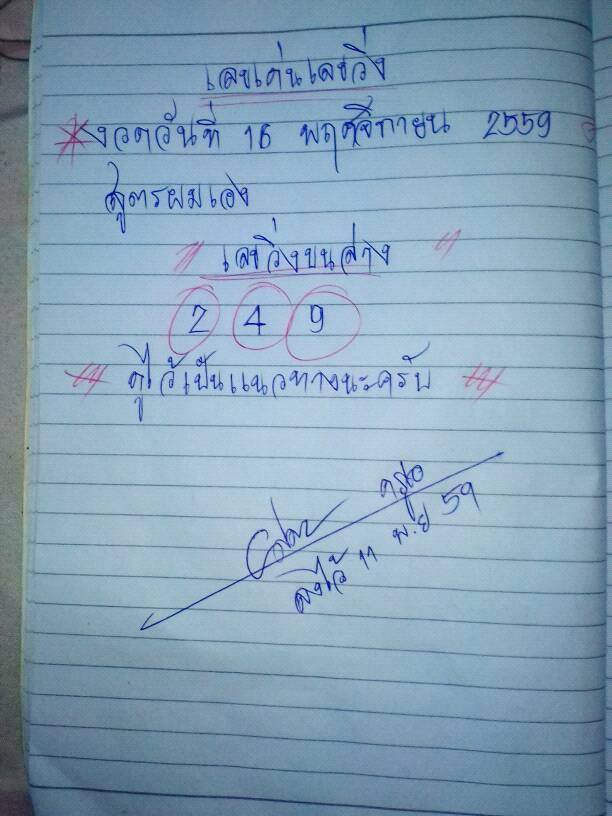 เลขเด่นเลขวิ่ง
งวดวันที่ 16 พฤศจิกายน 2559
สูตรผมเอง
เลขวิ่งบนล่าง
2 4 9
ดูไว้เป็นแนวทางนะครับ
ลงไว้ 11 พ.ย 59